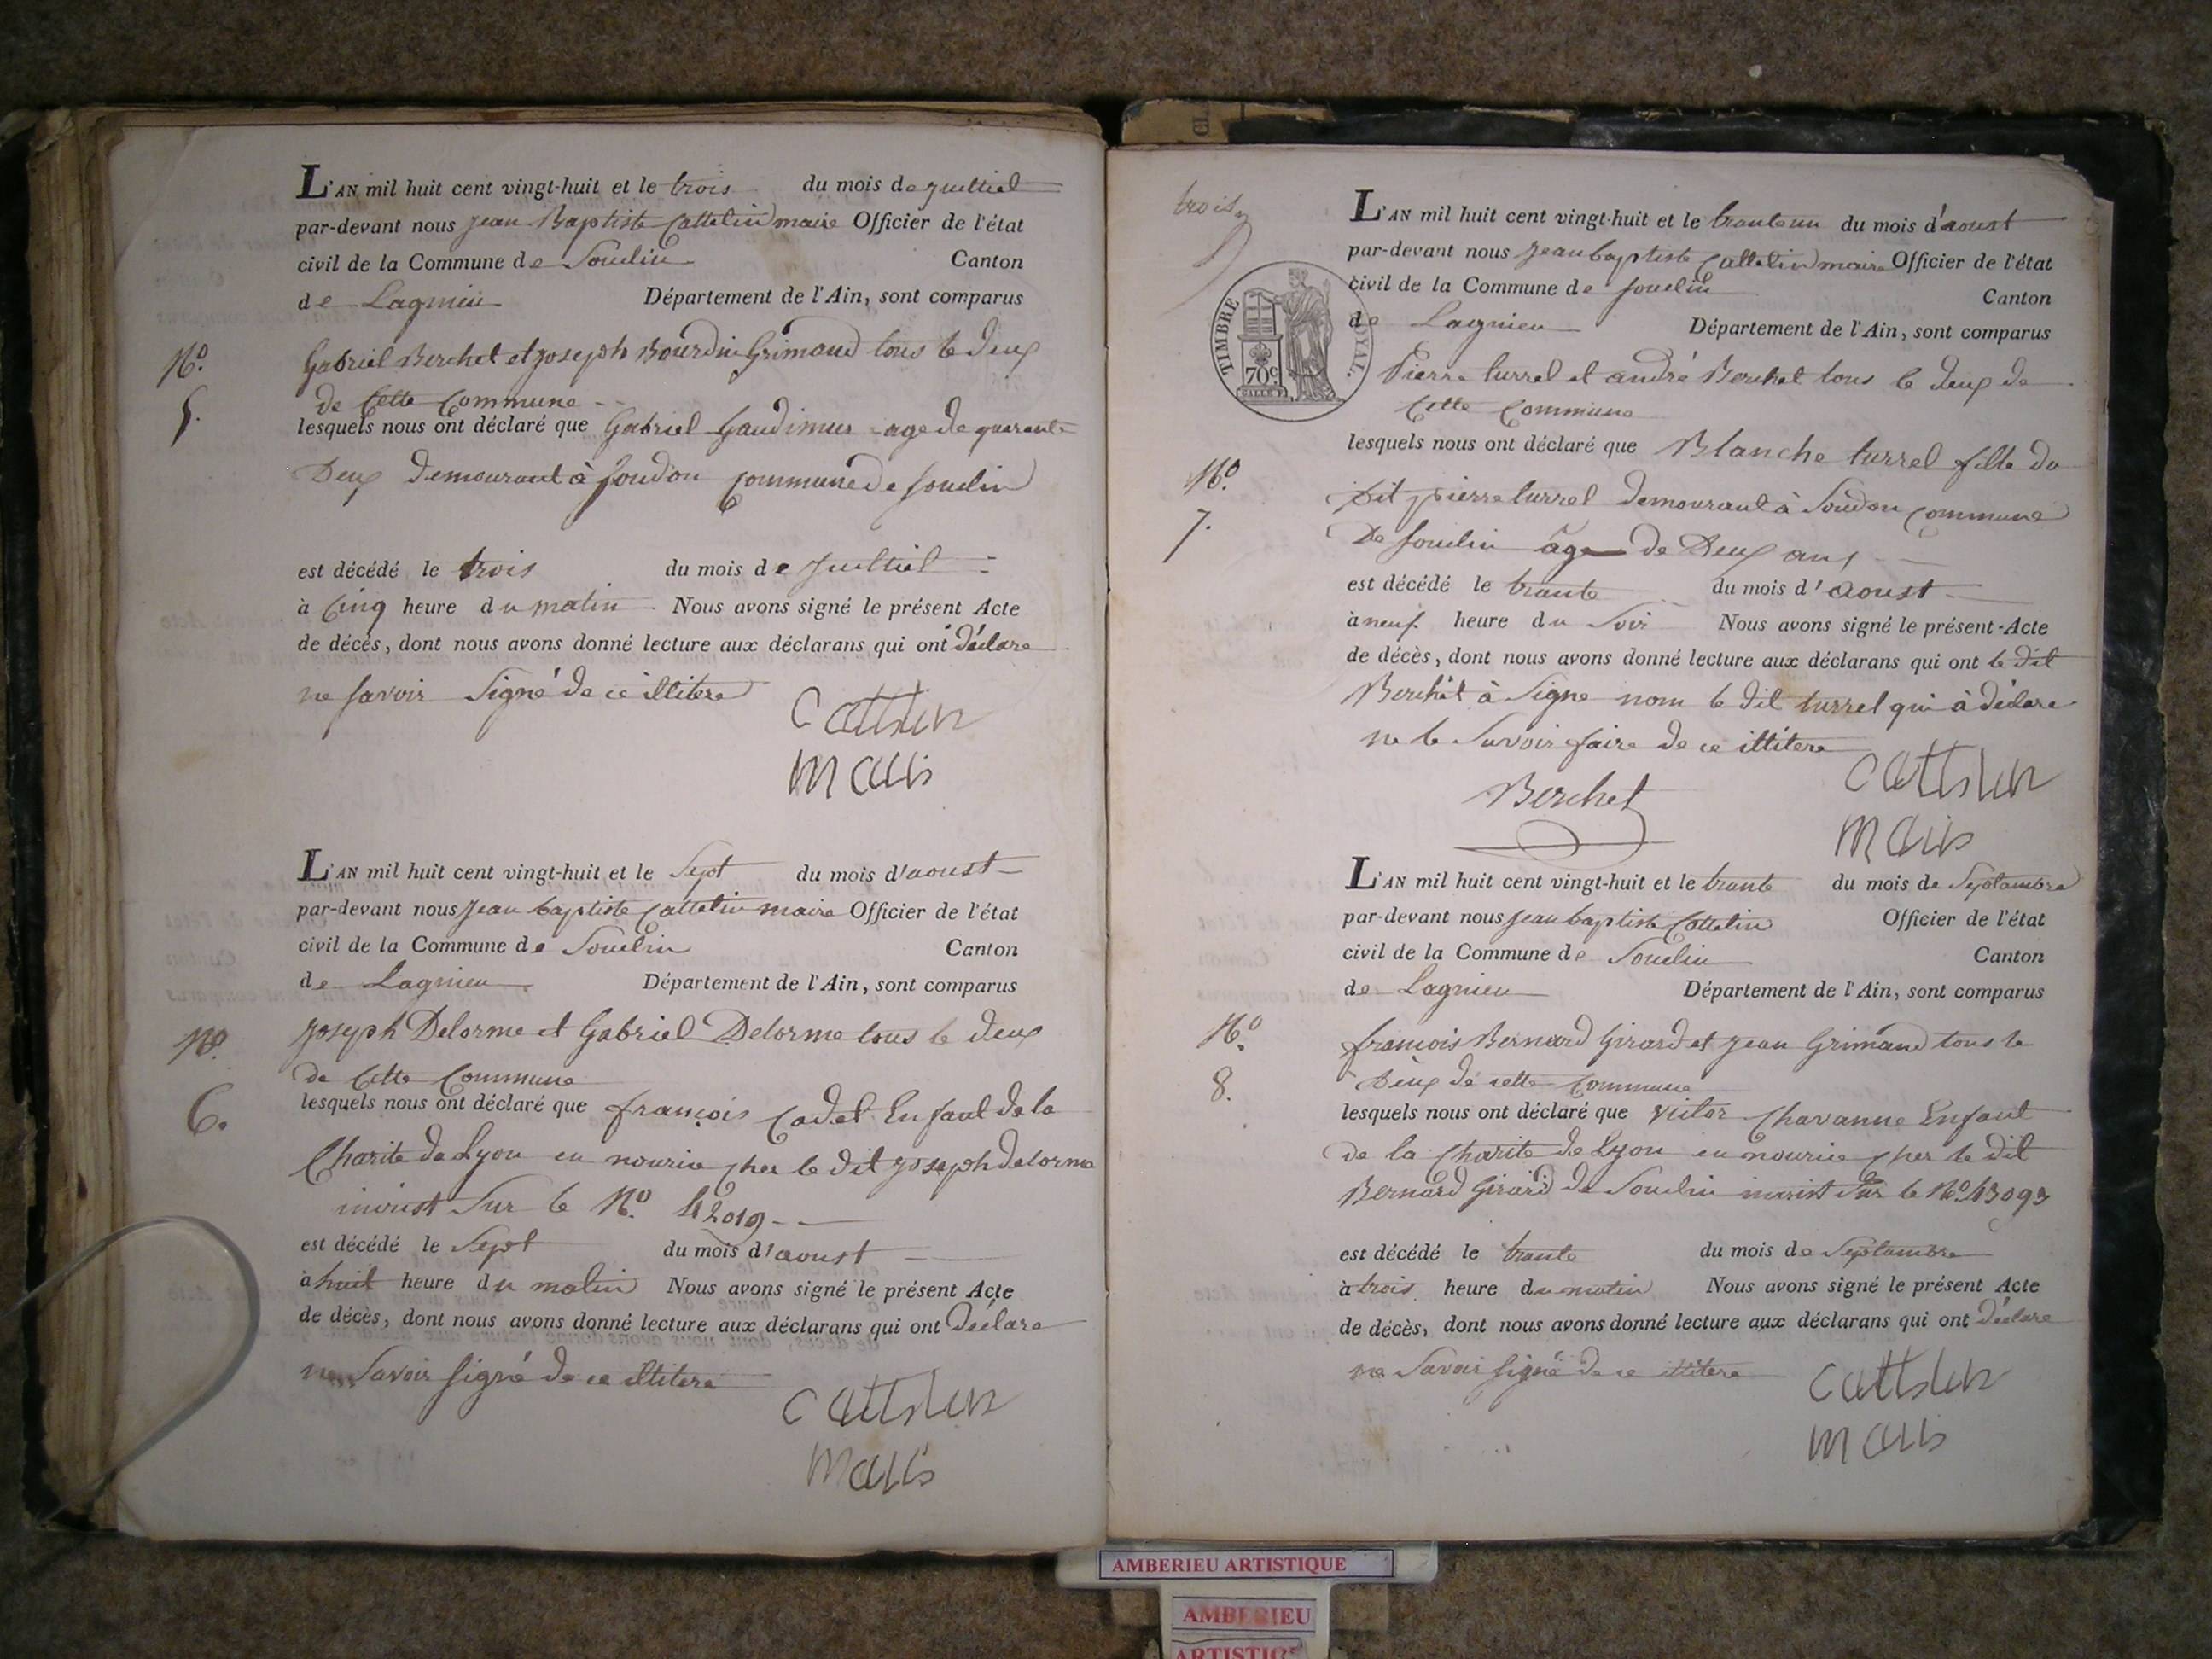 L'AN mil huit cent vingt-huit et le trois du mois de juilliel
par-devant nous jean Baptiste Cattelin maire Officier de l'état
civil de la Commune de Souclin Canton
de Lagnieu Département de l'Ain, sont comparus
N.o Gabriel Berchet et joseph Bourdin Grimaud tous le deux
5. de Cette Commune
lesquels nous ont déclaré que Gabriel Gaudimus age de quarente
Deux demourant à Soudon commune de Souclin
est décédé le trois du mois de juilliel
à Cinq heure du matin Nous avons signé le présent Acte
de décès, dont nous avons donné lecture aux déclarans qui ont déclare
ne savoir Signé de ce illitere
Cattelin
maire
L'AN mil huit cent vingt-huit et le Sept du mois d'aoust
par-devant nous jean baptiste Cattelin maire Officier de l'état
civil de la Commune de Souclin Canton
de Lagnieu Département de l'Ain, sont comparus
N.o joseph Delorme et Gabriel Delorme tous le deux
de Cette Commune
6. lesquels nous ont déclaré que françois Cadet Enfant de la
Charite de Lyon en nourice ches le dit joseph delorme
inscrist Sur le N.o 42019
est décédé le Sept du mois d'aoust
à huit heure du matin Nous avons signé le présent Acte
de décès, dont nous avons donné lecture aux déclarans qui ont déclare
ne Savoir signé de ce illitere
Cattelin
maire
trois
TIMBRE ROYAL.
70c
L'AN mil huit cent vingt-huit et le trante un du mois d'aoust
par-devant nous jean baptiste Cattelin maire Officier de l'état
civil de la Commune de Souclin Canton
de Lagnieu Département de l'Ain, sont comparus
Pierre turrel et andré Berchet tous le deux de
Cette Commune
lesquels nous ont déclaré que Blanche turrel fille du
N.o dit pierre turrel demourant à Soudon commune
7. De Souclin age de Deux ans
est décédé le trante du mois d'aoust
à neuf heure du Soir Nous avons signé le présent Acte
de décès, dont nous avons donné lecture aux déclarans qui ont le dit
Berchet à Signe nom le dit turrel qui à déclare
ne le Savoir faire de ce illitere
Berchet Cattelin
maire
L'AN mil huit cent vingt-huit et le trante du mois de Septambre
par-devant nous jean baptiste Cattelin Officier de l'état
civil de la Commune de Souclin Canton
de Lagnieu Département de l'Ain, sont comparus
N.o francois Bernard Girard et jean Grimaud tous le
8. Deux de cette Commune
lesquels nous ont déclaré que victor Chavanne Enfant
de la Charite de Lyon en nourice ches le dit
Bernard Girard de Souclin inscrist sur le N.o 43093
est décédé le trante du mois de Septambre
à trois heure du matin Nous avons signé le présent Acte
de décès, dont nous avons donné lecture aux déclarans qui ont déclare
ne Savoir signé de ce illitere
Cattelin
maire
AMBERIEU ARTISTIQUE
AMBERIEU
ARTISTIQ